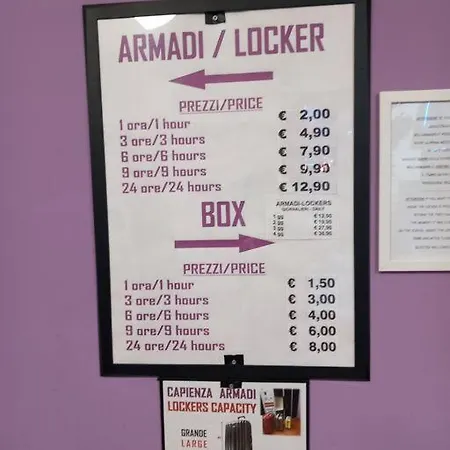 ARMADI / LOCKER
PREZZI/PRICE
1 ora/1 hour € 2,00
3 ore/3 hours € 4,90
6 ore/6 hours € 7,90
9 ore/9 hours € 9,90
24 ore/24 hours € 12,90
BOX
ARMADI-LOCKERS
GIORNALIERI - DAILY
1 gg € 12,90
2 gg € 19,90
3 gg € 27,90
4 gg
PREZZI/PRICE
1 ora/1 hour € 1,50
3 ore/3 hours € 3,00
6 ore/6 hours € 4,00
9 ore/9 hours € 6,00
24 ore/24 hours € 8,00
CAPIENZA ARMADI
LOCKERS CAPACITY
GRANDE
LARGE